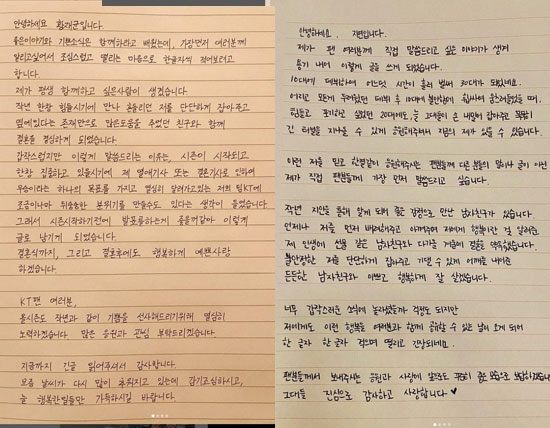 안녕하세요 황재균입니다.
좋은이야기와 기쁜소식은 함께하라고 배웠는데, 가장먼저 여러분께
알리고싶어서 조심스럽고 떨리는 마음으로 한글자씩 적어보려고
합니다
제가 평생 함께하고 싶은사람이 생겼습니다.
작년 한창 힘들시기에 만나 흔들리던 저를 단단하게 잡아주고
옆에있다는 존재만으로 많은도움을 주었던 친구와 함께
결혼을 결심하게 되었습니다.
갑작스럽지만 이렇게 말씀드리는 이유는, 시즌이 시작되고
한창 집중하고 있을시기에 제 열애기사 또는 결혼기사로 인하여
우승이라는 하나의 목표를 가지고 열심히 달려가고있는 저희 팀KT에
조금이나마 뒤숭숭한 분위기를 만들수도 있다는 생각이 들었습니다
그래서 시즌시작하기전에 발표를하는게 좋을꺼같아 이렇게
글로 남기게 되었습니다.
결혼식까지, 그리고 결혼후에도 행복하게 예쁜사랑
하겠습니다.
KT팬 여러분,
올시즌도 작년과 같이 기쁨을 선사해드리기위해 열심히
노력하겠습니다 많은 응원과 관심 부탁드리겠습니다.
지금까지 긴글 읽어주셔서 감사합니다.
요즘 날씨가 다시 많이 추워지고 있는데 감기조심하시고,
늘 행복한일들만 가득하시길 바랍니다.
안녕하세요. 지연입니다.
제가 팬 여러분께 직접 말씀드리고 싶은 이야기가 생겨
용기 내어 이렇게 글을 쓰게 되었습니다.
10대에 데뷔하여 어느덧 시간이 흘러 벌써 30대가 되었네요.
어리고 모든게 두려웠던 데뷔 후 10대에 불안함에 휩싸여 흔들려했을 때,
힘들고 포기하고 싶었던 20대에도, 늘 그대들이 손 내밀어 잡아주고 묵묵히
긴 터널을 지나올 수 있게 응원해주셔서 지금의 제가 있을 수 있습니다.
이런 저를 믿고 한결같이 응원해주시는 팬분들께 다른 분들의 말이나 글이 아닌
제가 직접 팬분들께 가장 먼저 말씀드리고 싶습니다.
작년 지인을 통해 알게 되어 좋은 감정으로 만난 남자친구가 있습니다.
언제나 저를 먼저 배려해주고 아껴주며 저에게 행복이란 걸 알려준
제 인생에 선물 같은 남자친구와 다가올 겨울에 결혼을 약속했습니다.
불안정한 저를 단단하게 잡아주고 기댈 수 있게 어깨를 내어준
든든한 남자친구와 예쁘고 행복하게 잘 살겠습니다.
너무 갑작스러운 소식에 놀라셨을까 걱정도 되지만
저에게도 이런 행복을 여러분과 함께 공유할 수 있는 날이 오게 되어
한 글자 한 글자 적으며 떨리고 긴장되네요.
팬분들께서 보내주시는 응원과 사랑에 앞으로도 꾸준히 좋은 모습으로 보답하겠습니다
그대들 진심으로 감사하고 사랑합니다♥